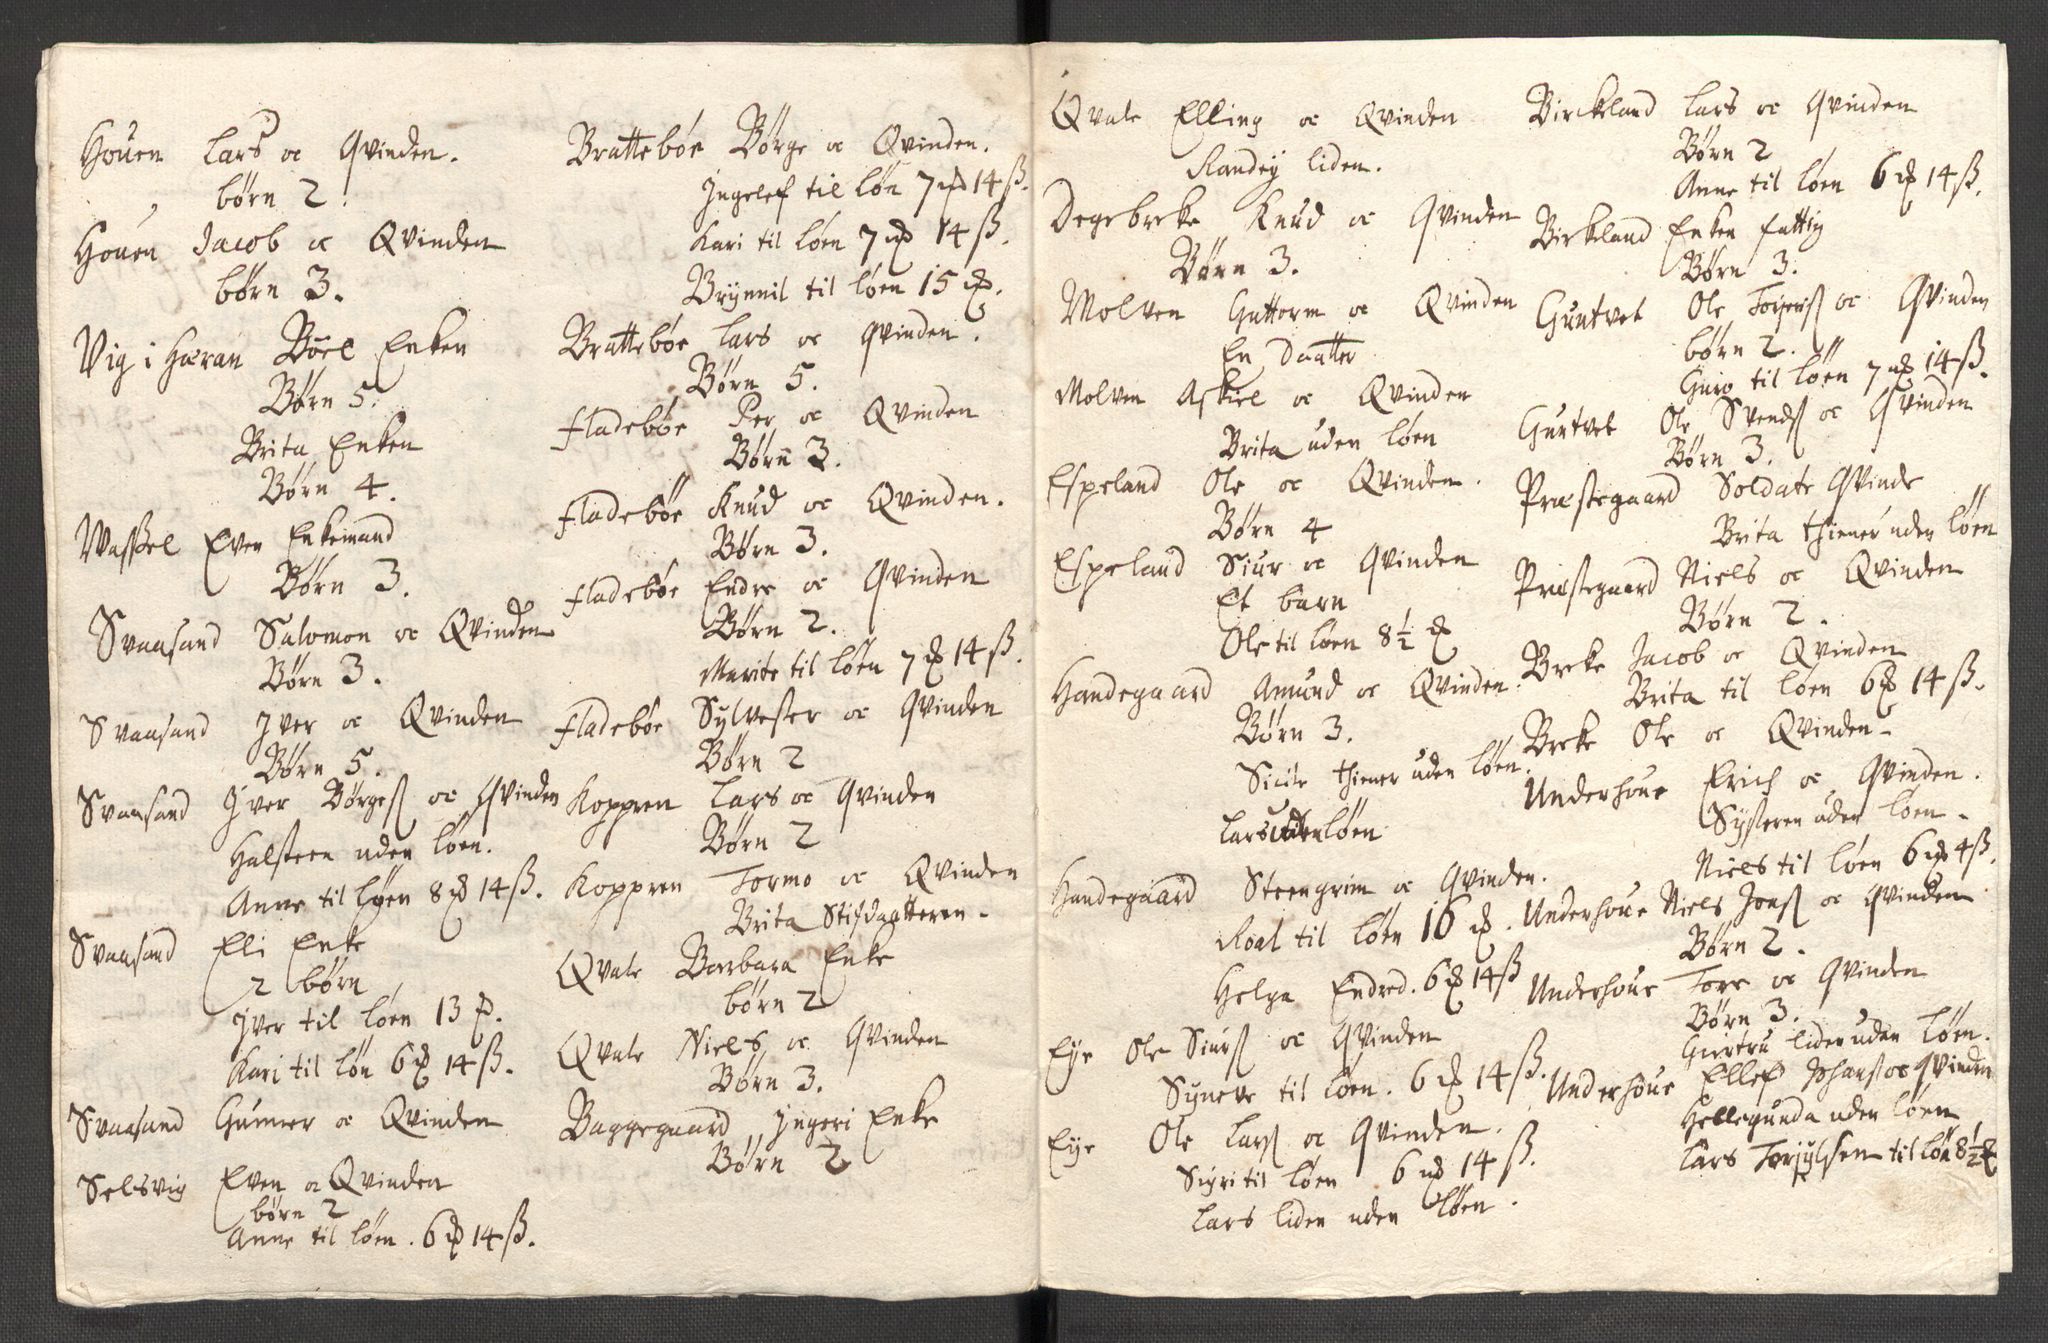 Houen Lars oc Qvinden.
börn 2.
Houen Jacob oc Qvinden
börn 3.
Vig i Hæran Böel Enken
Börn 5.
Brita Enken
Börn 4.
Wassel Even Enkemand
Börn 3.
Svaasand Salomon oc Qvinden
Börn 3.
Svaasand Iver oc Qvinden
Börn 5.
Svaasand Iver Börges oc Qvinden
Halsteen uden löen.
Anne til löen 8 ort 14 ß.
Svaasand Eli Enke
2 börn
Iver til löen 13 ort.
Kari til lön 6 ort 14 ß.
Svaasand Gunner oc Qvinden
Selsvig Even oc Qvinden
börn 2
Anne til löen. 6 ort 14 ß.
Bratteböe Börge oc Qvinden.
Ingelef til lön 7 ort 14 ß.
Kari til löen 7 ort 14 ß.
Brynnil til löen 15 ort.
Bratteböe Lars oc Qvinden.
Börn 5.
Fladeböe Per oc Qvinden
Börn 3.
Fladeböe Knud oc Qvinden.
Börn 3.
Fladeböe Endre oc Qvinden
Börn 2.
Marite til löen 7 ort 14 ß.
Fladeböe Sylvester oc Qvinden
Börn 2
Koppren Lars oc Qvinden
Börn 2
Koppren Tormo oc Qvinden
Brita Stifdaatteren.
Qvale Barbara Enke
börn 2
Qvale Niels oc Qvinden
Börn 3.
Baggegaard Ingeri Enke
Börn 2
Qvale Elling oc Qvinden
Randey liden.
Degebrecke Knud oc Qvinden
Börn 3.
Molven Guttorm oc Qvinden
En Daatter
Molven Askiel oc Qvinden
Brita uden löen
Espeland Ole oc Qvinden.
Börn 4
Espeland Siur oc Qvinden
Et barn
Ole til löen 8½ ort
Handegaard Amund oc Qvinden.
Börn 3.
Sicile thiener uden löen.
Lars uden löen
Handegaard Steengrim oc Qvinden.
Roal til löen 16 ort.
Helga Endred. 6 ort 14 ß
Eye Ole Siurs oc Qvinden
Syneve til löen. 6 ort 14 ß.
Eye Ole Lars oc Qvinden.
Sigri til löen 6 ort 14 ß.
Lars liden uden löen.
Birckeland Lars oc Qvinden
Börn 2
Anne til löen 6 ort 14 ß.
Birkeland Enken fattig
Börn 3.
Guntvet Ole Torjers oc Qvinden
börn 2.
Guro til löen 7 ort 14 ß.
Guntvet Ole Svends oc Qvinden
Börn 3.
Præstegaard Soldate Qvinde
Brita thiener uden löen
Præstegaard Niels oc Qvinden
Börn 2.
Breke Jacob oc Qvinden
Brita til löen 6 ort 14 ß.
Breke Ole oc Qvinden.
Underhoue Erich oc Qvinden.
Systeren uden löen.
Niels til löen 6 ort 4 ß.
Underhoue Niels Jons oc Qvinden
Börn 2.
Underhoue Tore oc Qvinden
Börn 3.
Giertru liden uden löen.
Underhoue Ellef Johans oc Qvinden
Hellegunda uden löen
Lars Torjylsen til lön 8½ ort